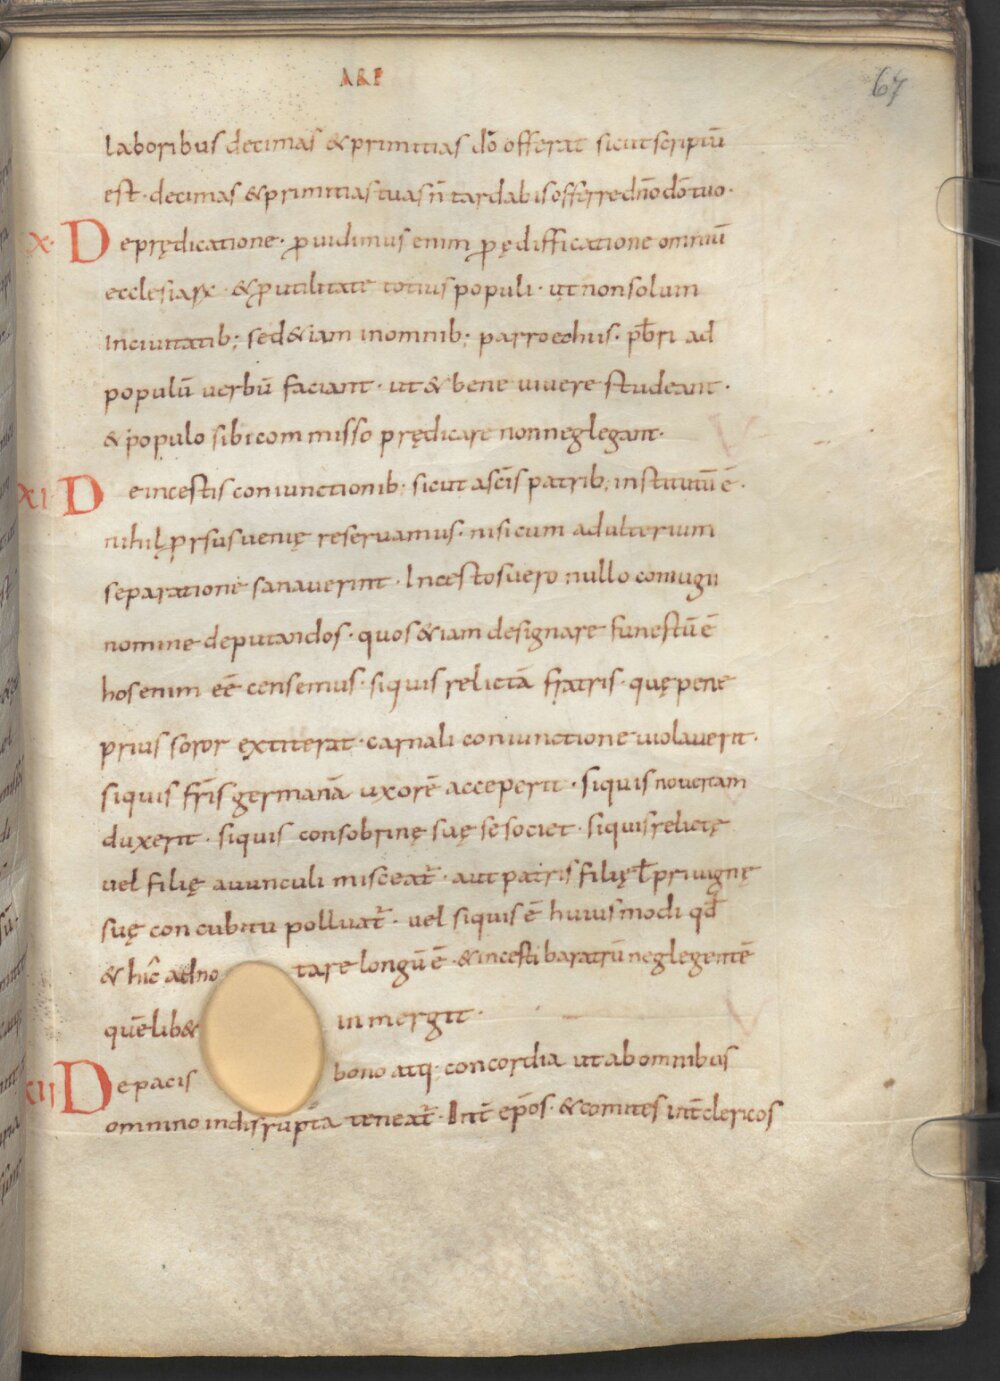 ARE
67
laboribus decimas & primitias dō offerat sicut scriptū
est · decimas & primitias tuas n̄ tardabis offerre dn̄o dō tuo ·
X· De prędicatione · ꝓuidimus enim ꝓ ędifficatione omniū
ecclesiarum · & ꝓ utilitate totius populi · ut non solum
In ciuitatib; sed &iam in omnib; parroechiis · pb̄ri ad
populū uerbū faciant · ut & bene uiuere studeant ·
& populo sibi commisso prędicare non neglegant·
XI· De incestis coniunctionib; sicut a sc̄is patrib; institutū ē ·
nihil ꝓrsus uenię reseruamus · nisi cum adulterium
separatione sanauerint · Incestos uero nullo coniugii
nomine deputandos · quos &iam designare funestū ē
hos enim eē censemus · siquis relictā fratris · quę pene
prius soror extiterat · carnali coniunctione uiolauerit ·
siquis fr̄is germanā uxorē acceperit · siquis nouercam
duxerit · siquis consobrinę suę se societ · siquis relictę
uel filię auunculi misceat̄ · aut patris filię ł priuignę
suę concubitu polluat̄ · uel siquis ē huiusmodi qđ
& hic̄ adno tare longū ē · & incesti baratrū neglegentē
quēlib& inmergit ·
XII De pacis bono atq· concordia ut ab omnibus
omnino indisrupta teneat̄ · Int̄ ep̄os · & comites int̄ clericos